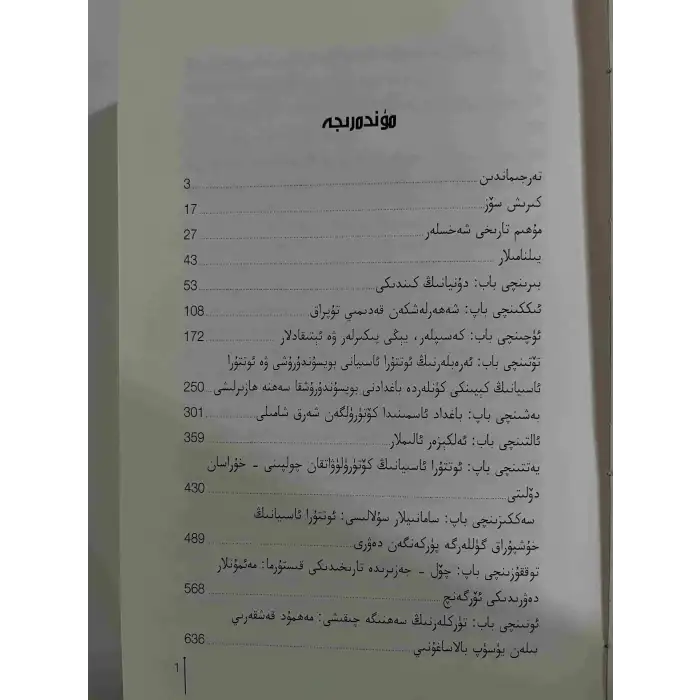 مۇندەرىجە
تەرجىماندىن 3
كىرىش سۆز 17
مۇھىم تارىخى شەخسلەر 27
يىلنامىلار 43
بىرىنچى باپ: دۇنيانىڭ كىندىكى 53
ئىككىنچى باپ: شەھەرلەشكەن قەدىمىي تۇپراق 108
ئۈچىنچى باپ: كەسىپلەر، يېڭى پىكىرلەر ۋە ئېتىقادلار 172
تۆتىنچى باپ: ئەرەبلەرنىڭ ئوتتۇرا ئاسىيانى بويسۇندۇرۇشى ۋە ئوتتۇرا
ئاسىيانىڭ كېيىنكى كۈنلەردە باغدادنى بويسۇندۇرۇشقا سەھنە ھازىرلىشى 250
بەشىنچى باپ: باغداد ئاسمىنىدا كۆتۈرۈلگەن شەرق شامىلى 301
ئالتىنچى باپ: ئەلكېزەر ئالىملار 359
يەتتىنچى باپ: ئوتتۇرا ئاسىيانىڭ كۆتۈرۈلۈۋاتقان چولپىنى - خۇراسان
دۆلىتى 430
سەككىزىنچى باپ: سامانىيلار سۇلالىسى: ئوتتۇرا ئاسىيانىڭ
خۇشپۇراق گۈللەرگە پۈركەنگەن دەۋرى 489
توققۇزىنچى باپ: چۆل - جەزىرىدە تارىخىدىكى قىستۇرما: مەئمۇنلار
دەۋرىدىكى ئۈرگەنچ 568
ئونىنچى باپ: تۈركلەرنىڭ سەھنىگە چىقىشى: مەھمۇد قەشقەرىي
بىلەن يۈسۈپ بالاساغۇنىي 636
1